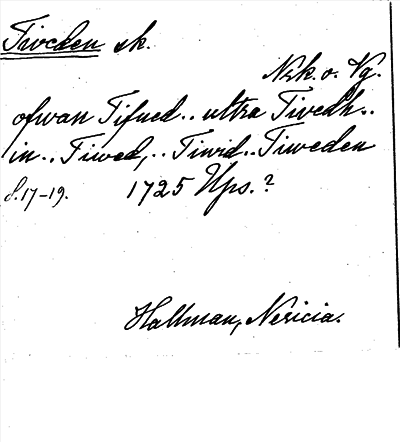 Tiveden sk.
Nrk. o. Vg.
ofwan Tifwed.. ultra Tiwedh..
in.. Tiwed,.. Tiwid.. Tiweden
S. 17-19. 1725 Ups.?
Hallman, Nericia.